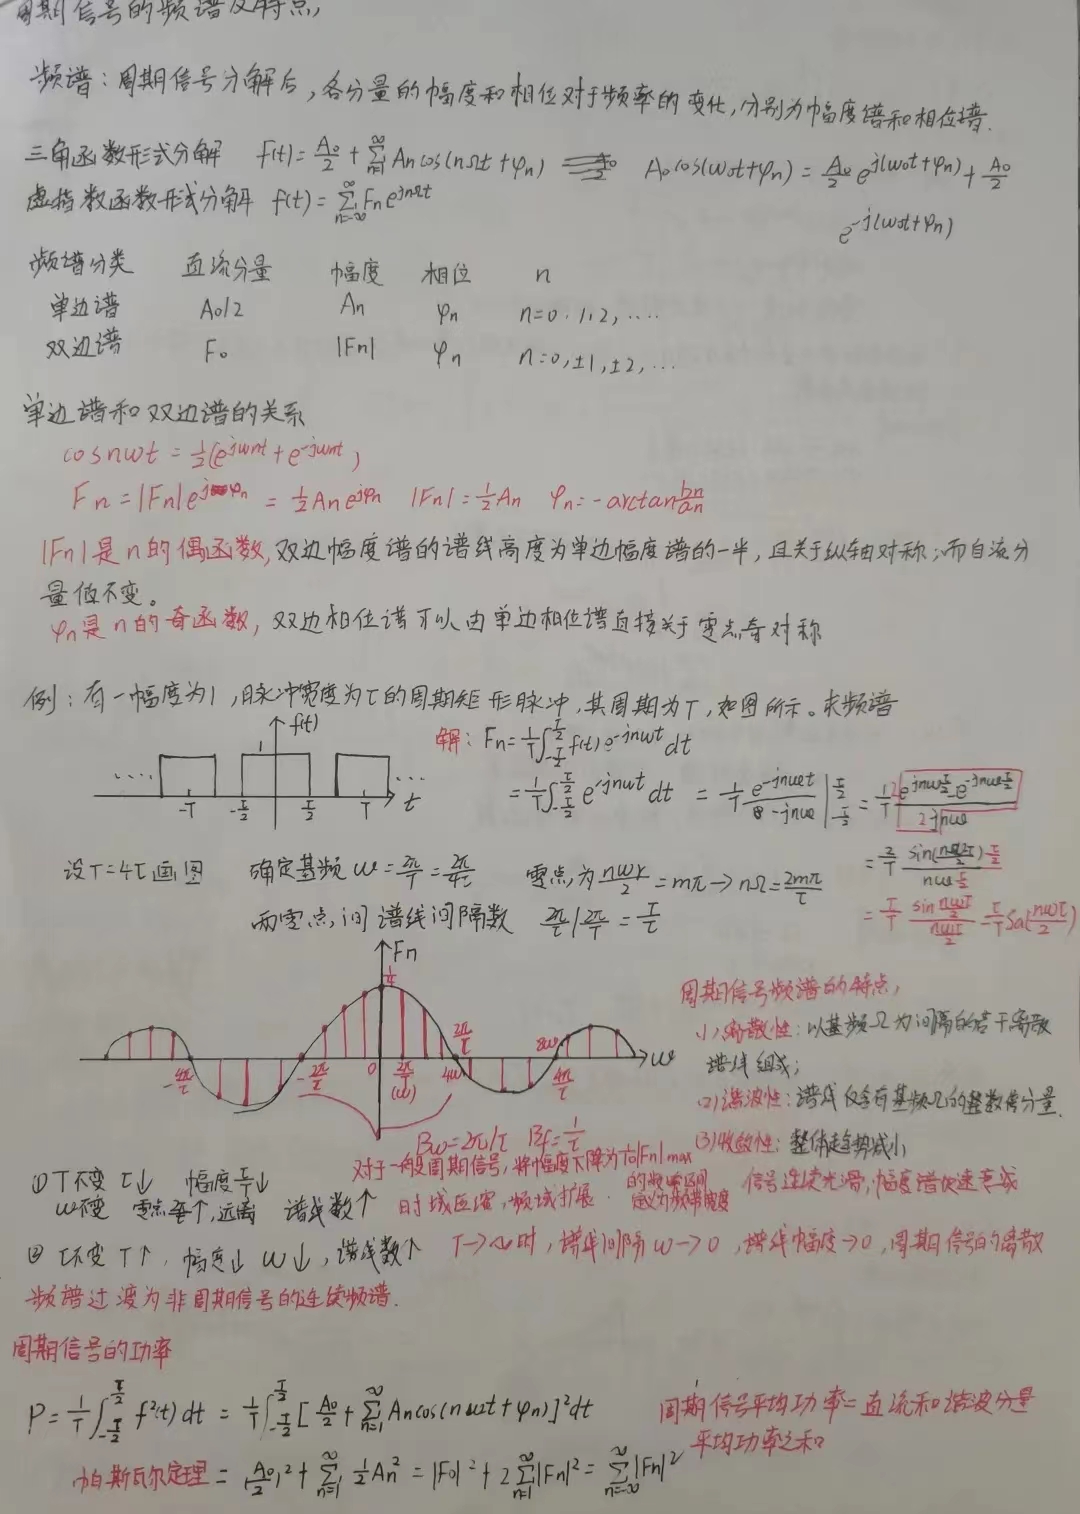 周期信号的频谱及特点
频谱：周期信号分解后，各分量的幅度和相位对于频率的变化，分别为幅度谱和相位谱.
三角函数形式分解 f(t)=A₀/2+∑_{n=1}^{∞}Ancos(nΩt+φn) A₀/2 A₀cos(ω₀t+φn)=A₀/2 e^{j(ω₀t+φn)}+A₀/2
虚指数函数形式分解 f(t)=∑_{n=-∞}^{∞}Fn e^{jnΩt}
e^{-j(ω₀t+φn)}
频谱分类 直流分量 幅度 相位 n
单边谱 A₀/2 An φn n=0.1.2,....
双边谱 F₀ |Fn| φn n=0,±1,±2,...
单边谱和双边谱的关系
cosnωt=½(e^{jωnt}+e^{-jωnt})
Fn=|Fn|e^{jφn}=½An e^{jφn} |Fn|=½An φn=-arctan bn/an
|Fn|是n的偶函数,双边幅度谱的谱线高度为单边幅度谱的一半，且关于纵轴对称；而直流分
量值不变。
φn是n的奇函数，双边相位谱可以由单边相位谱直接关于零点奇对称
例：有一幅度为1，脉冲宽度为τ的周期矩形脉冲，其周期为T，如图所示。求频谱
f(t)
1
..... -T -τ/2 τ/2 T ... t
解：Fn=1/T∫_{-T/2}^{T/2}f(t)e^{-jnωt}dt
=1/T∫_{-τ/2}^{τ/2}e^{-jnωt}dt =1/T e^{-jnωt}/-jnω |_{-τ/2}^{τ/2} =1/T 2 e^{jnωτ/2}-e^{-jnωτ/2}/2jnω
=2/T sin(nωτ/2)τ/2/nωτ/2
=τ/T sin nωτ/2/nωτ/2=τ/T Sa(nωτ/2)
设T=4τ画图 确定基频ω=2π/T=2π/4τ 零点为nωτ/2=mπ→nΩ=2mπ/τ
两零点间谱线间隔数 2π/τ/2π/T=T/τ
Fn
1/4
-4π/τ -2π/τ 0 2π/T (ω) 2π/τ 4ω 8ω 4π/τ ω
Bω=2π/τ Bf=1/τ
周期信号频谱的特点
(1)离散性：以基频Ω为间隔的若干离散
谱线组成；
(2)谐波性：谱线仅含有基频Ω的整数倍分量.
(3)收敛性：整体趋势减小
信号连续光滑,幅度谱快速衰减
对于一般周期信号，将幅度下降为1/10|Fn|max
的频率区间
定义为频带宽度
①T不变 τ↓ 幅度τ/T↓
ω不变 零点 远离 谱线数↑ 时域压缩，频域扩展.
②τ不变 T↑, 幅度↓ ω↓, 谱线数↑ T→∞时，谱线间隔ω→0，谱线幅度→0，周期信号的离散
频谱过渡为非周期信号的连续频谱.
周期信号的功率
P=1/T∫_{-T/2}^{T/2}f²(t)dt=1/T∫_{-T/2}^{T/2}[A₀/2+∑_{n=1}^{∞}Ancos(nωt+φn)]²dt
周期信号平均功率=直流和谐波分量
平均功率之和
帕斯瓦尔定理=(A₀/2)²+∑_{n=1}^{∞}½An²=|F₀|²+2∑_{n=1}^{∞}|Fn|²=∑_{n=-∞}^{∞}|Fn|²